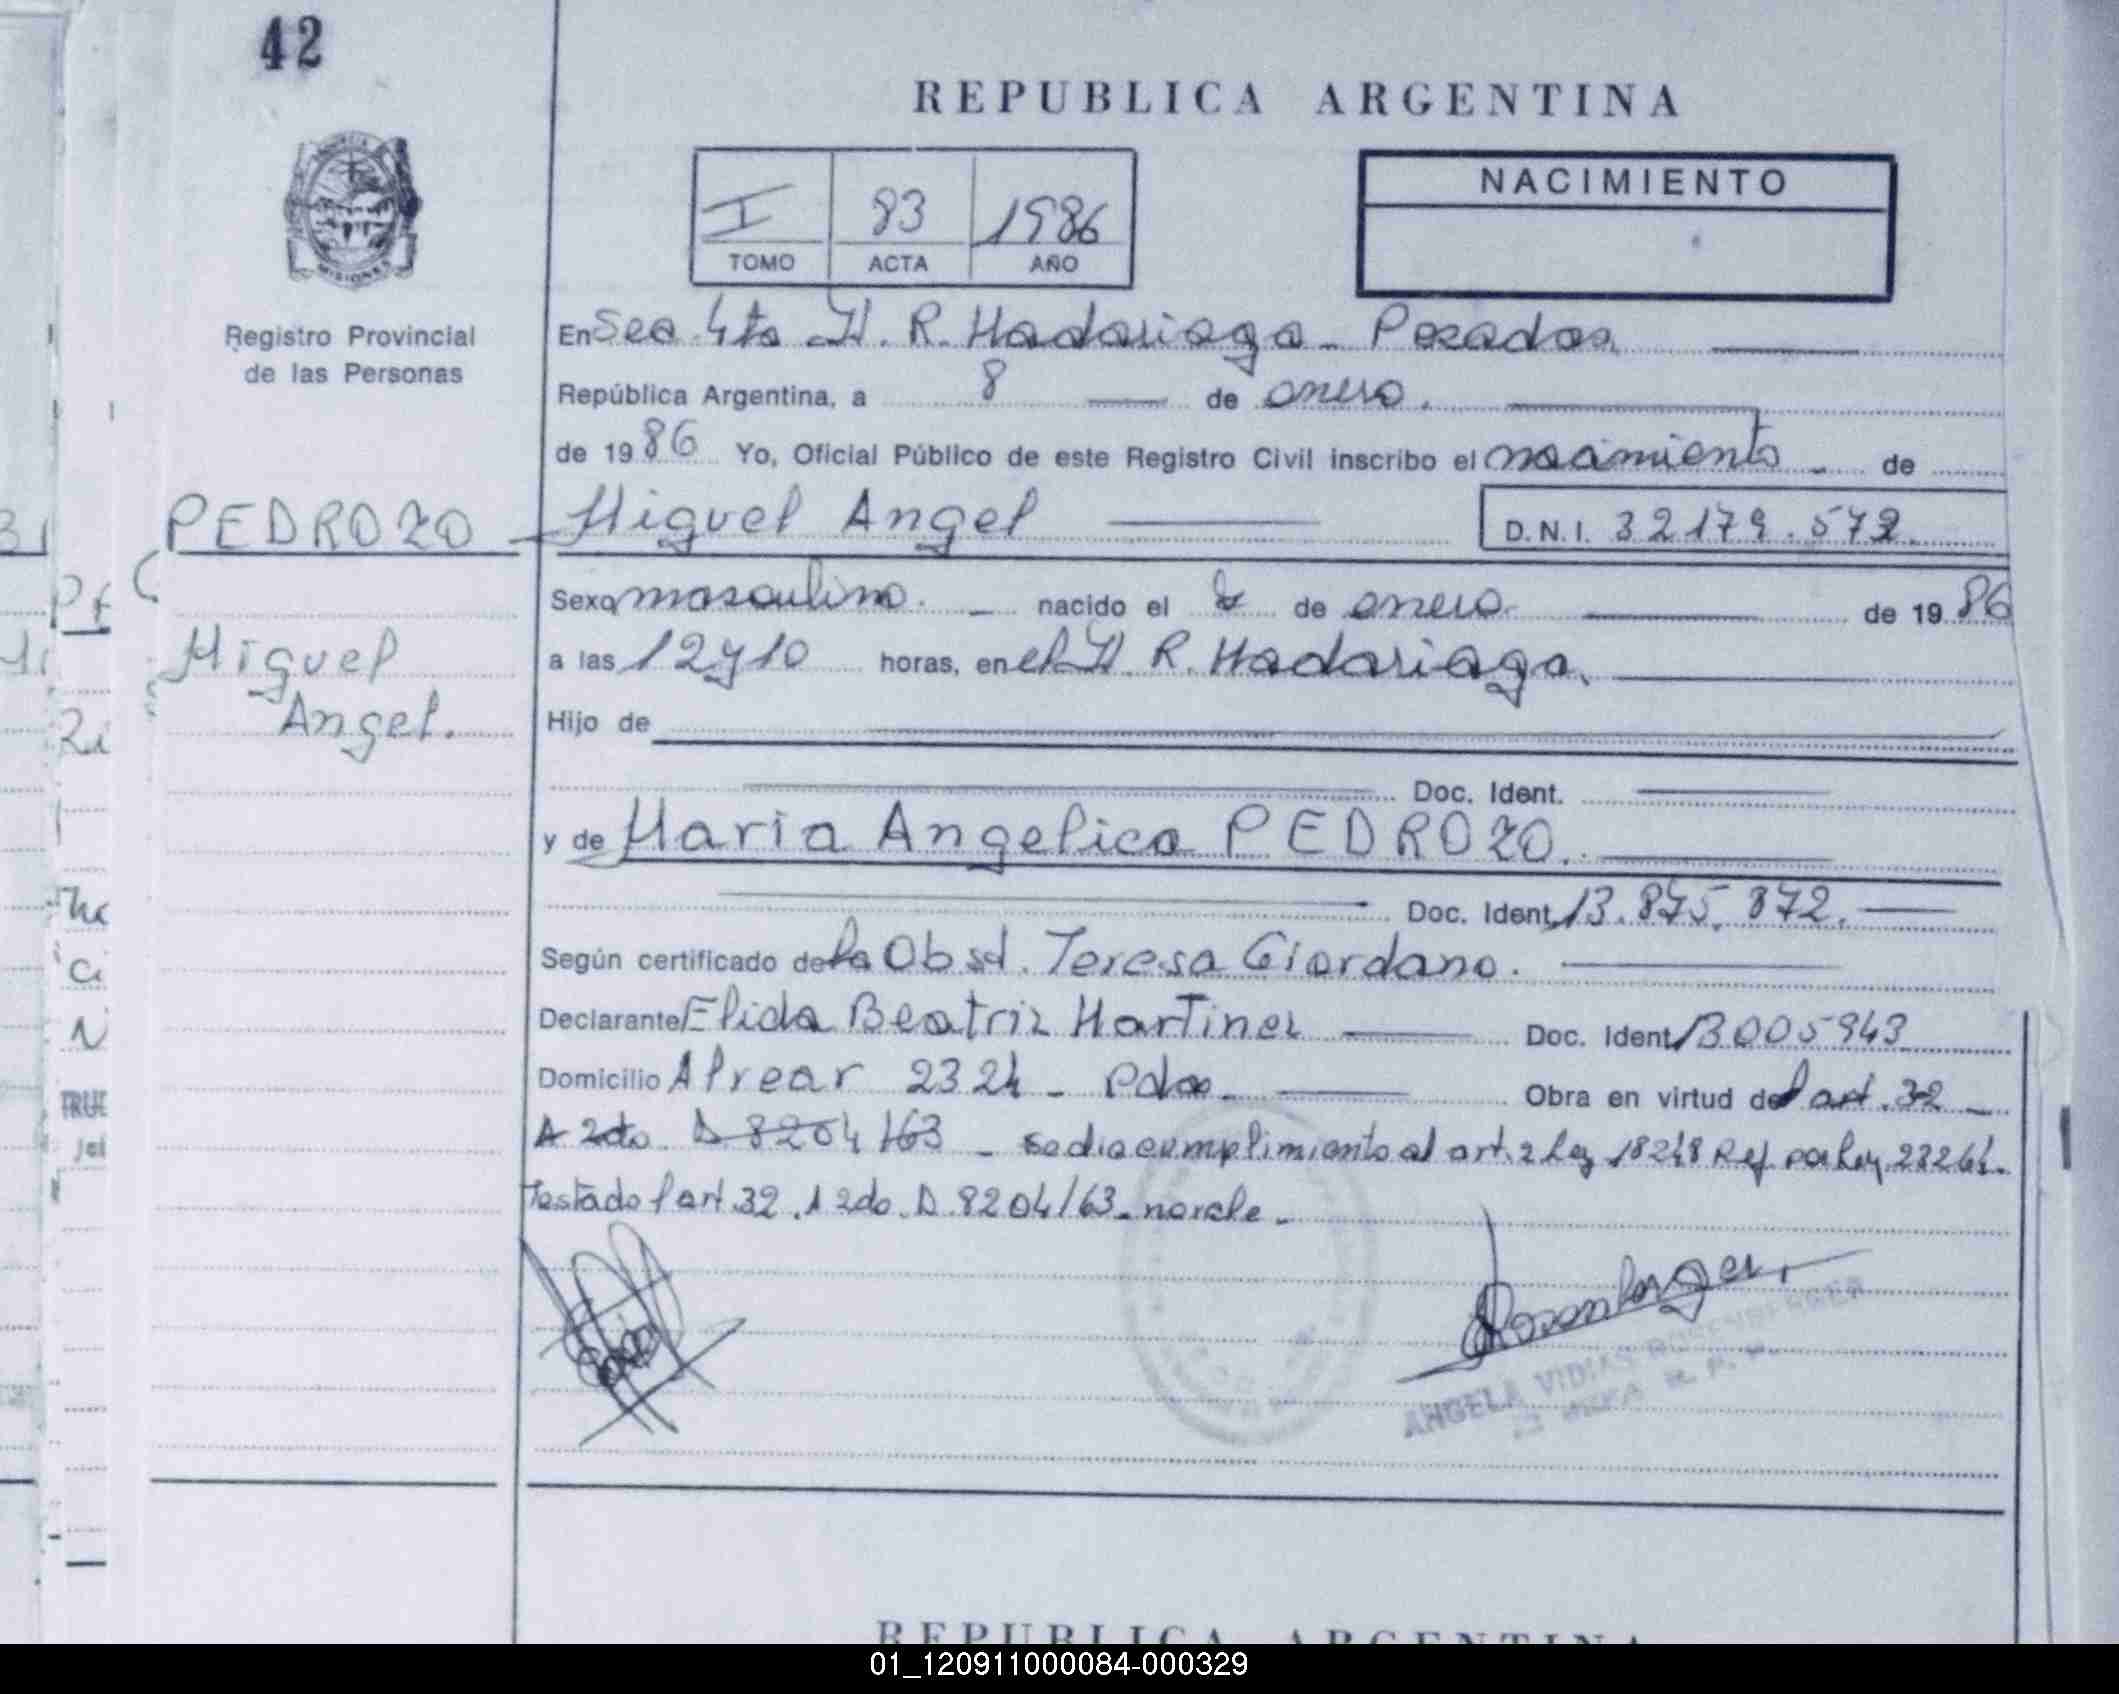 42
REPUBLICA ARGENTINA
I 83 1986
TOMO ACTA AÑO
NACIMIENTO
MISIONES
Registro Provincial
de las Personas
En Sec 4ta H. R. Madariaga - Posadas
República Argentina, a 8 de enero.
de 1986 Yo, Oficial Público de este Registro Civil inscribo el nacimiento - de
PEDROZO - Miguel Angel
D.N.I. 32179.572.
Sexo masculino. - nacido el de enero. de 1986
a las 12 y 10 horas, en el H. R. Madariaga.
Miguel
Angel.
Hijo de
Doc. Ident.
y de Maria Angelica PEDROZO.
Doc. Ident. 13.875.872.
Según certificado de la Obst. Teresa Giordano.
Declarante Elida Beatriz Martinez Doc. Ident. 13005943
Domicilio Alvear 2324 - Pdas. Obra en virtud del art. 32 -
A 2do. D 8204/63 - se dio cumplimiento al art. 2 Ley 18248 Ref. por Ley 23264.
Testado l art. 32. A 2do. D. 8204/63 - no vale.
Rosenberger
ANGELA VIDIAS ROSENBERGER
REPUBLICA ARGENTINA
01_120911000084-000329